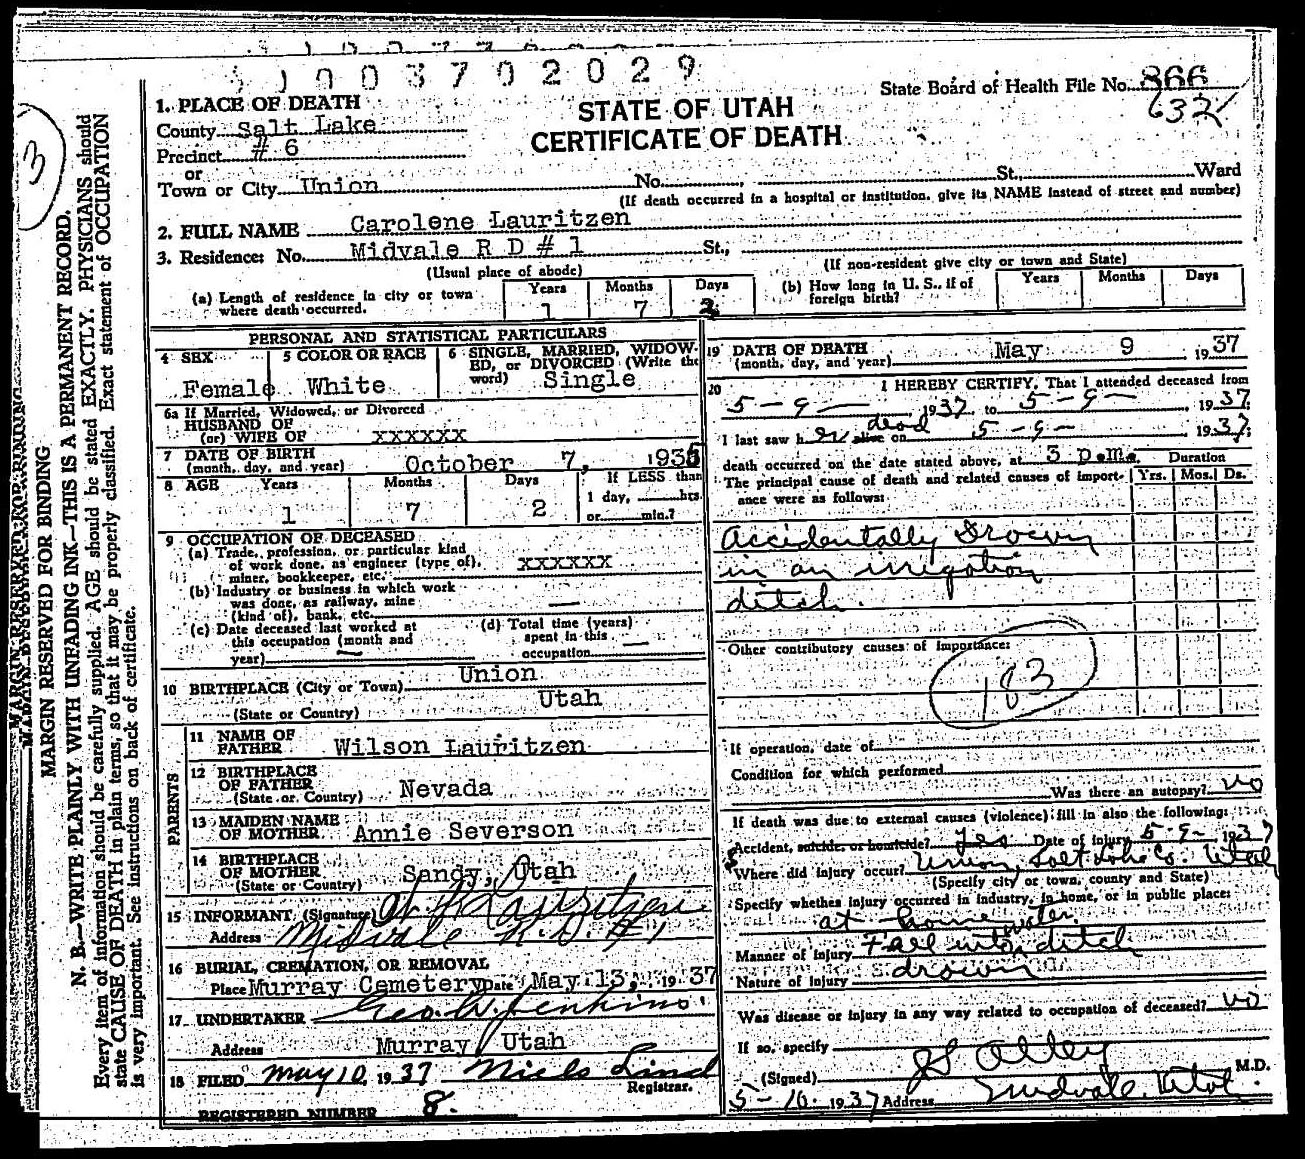 1003702029
State Board of Health File No. 866
632
STATE OF UTAH
CERTIFICATE OF DEATH
1. PLACE OF DEATH
County Salt Lake
Precinct # 6
or
Town or City Union No. St. Ward
(If death occurred in a hospital or institution, give its NAME instead of street and number)
2. FULL NAME Carolene Lauritzen
3. Residence: No. Midvale R D # 1 St.,
(Usual place of abode) (If non-resident give city or town and State)
(a) Length of residence in city or town where death occurred. Years 1 Months 7 Days 2
(b) How long in U. S., if of foreign birth? Years Months Days
PERSONAL AND STATISTICAL PARTICULARS
4 SEX Female
5 COLOR OR RACE White
6 SINGLE, MARRIED, WIDOWED, or DIVORCED (Write the word) Single
6a If Married, Widowed, or Divorced
HUSBAND OF
(or) WIFE OF xxxxxx
7 DATE OF BIRTH
(month, day, and year) October 7, 1935
8 AGE Years 1 Months 7 Days 2
If LESS than
1 day, hrs.
or min.?
9 OCCUPATION OF DECEASED
(a) Trade, profession, or particular kind
of work done, as engineer (type of),
miner, bookkeeper, etc. xxxxxx
(b) Industry or business in which work
was done, as railway, mine
(kind of), bank, etc. —
(c) Date deceased last worked at
this occupation (month and
year) —
(d) Total time (years)
spent in this
occupation —
10 BIRTHPLACE (City or Town) Union
(State or Country) Utah
PARENTS
11 NAME OF
FATHER Wilson Lauritzen
12 BIRTHPLACE
OF FATHER
(State or Country) Nevada
13 MAIDEN NAME
OF MOTHER Annie Severson
14 BIRTHPLACE
OF MOTHER
(State or Country) Sandy, Utah
15 INFORMANT (Signature) Lauritzen
Address Midvale R.D. #1
16 BURIAL, CREMATION, OR REMOVAL
Place Murray Cemetery Date May 13, 1937
17 UNDERTAKER Geo. W. Jenkins
Address Murray Utah
18 FILED May 10, 1937 Niels Lind
Registrar.
REGISTERED NUMBER 8.
19 DATE OF DEATH
(month, day, and year) May 9 1937
20 I HEREBY CERTIFY, That I attended deceased from
5-9- 1937 to 5-9- 1937,
I last saw her alive dead on 5-9- 1937,
death occurred on the date stated above, at 3 p.m.
The principal cause of death and related causes of importance were as follows:
Duration
Yrs. Mos. Ds.
Accidentally Drown
in an irrigation
ditch.
Other contributory causes of importance:
183
If operation, date of
Condition for which performed
Was there an autopsy? no
If death was due to external causes (violence) fill in also the following:
Accident, suicide, or homicide? Yes Date of injury 5-9- 1937
Where did injury occur? Union, Salt Lake Co. Utah
(Specify city or town, county and State)
Specify whether injury occurred in industry, in home, or in public place:
at home
water
Manner of injury Fall into ditch
Nature of injury drown
Was disease or injury in any way related to occupation of deceased? no
If so, specify
(Signed) M.D.
5-10- 1937 Address Midvale, Utah.
3
MARGIN RESERVED FOR BINDING
N. B.—WRITE PLAINLY WITH UNFADING INK—THIS IS A PERMANENT RECORD.
Every item of information should be carefully supplied. AGE should be stated EXACTLY. PHYSICIANS should
state CAUSE OF DEATH in plain terms, so that it may be properly classified. Exact statement of OCCUPATION
is very important. See instructions on back of certificate.